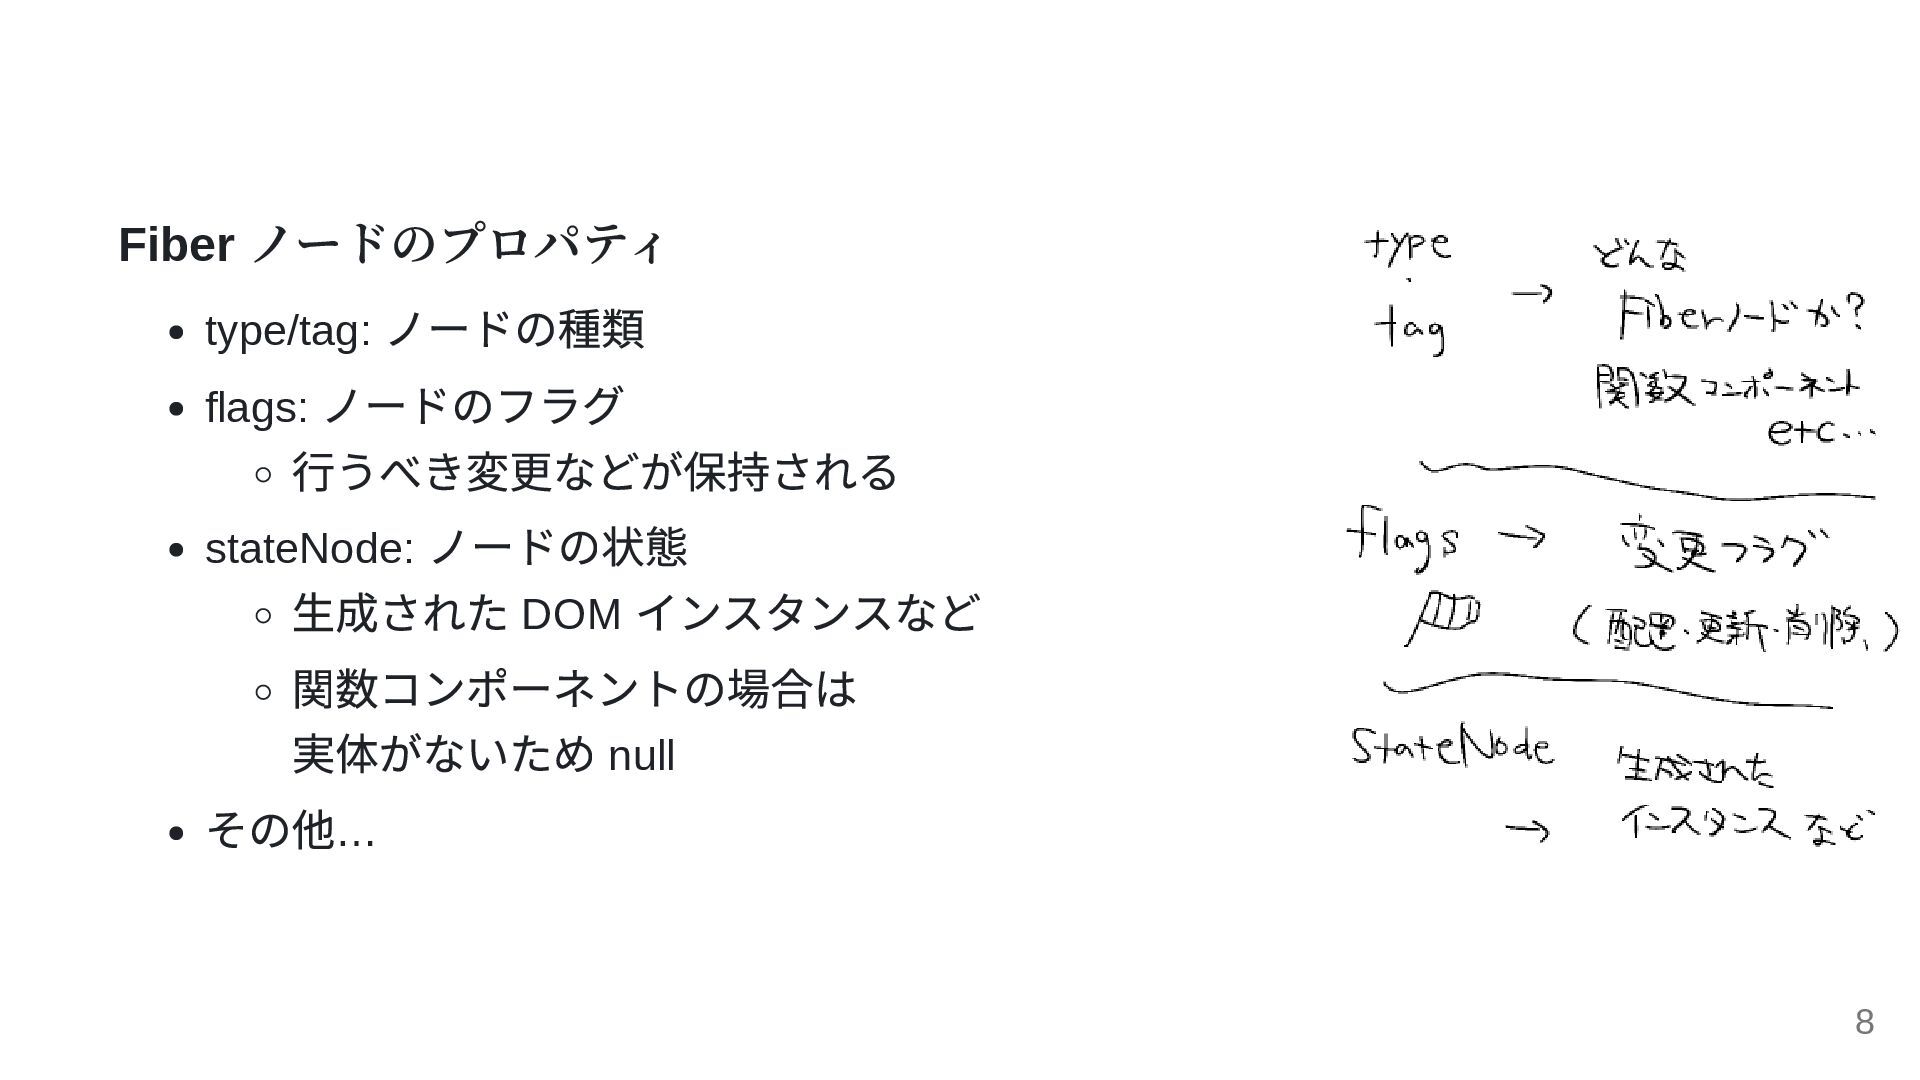 Fiber ノードのプロパティ
type/tag: ノードの種類
flags: ノードのフラグ
行うべき変更などが保持される
stateNode: ノードの状態
生成された DOM インスタンスなど
関数コンポーネントの場合は
実体がないため null
その他...
type
・
tag
→
どんな
Fiberノードか?
関数コンポーネント
etc...
flags → 変更フラグ
(配置・更新・削除、)
stateNode
→
生成された
インスタンスなど
8